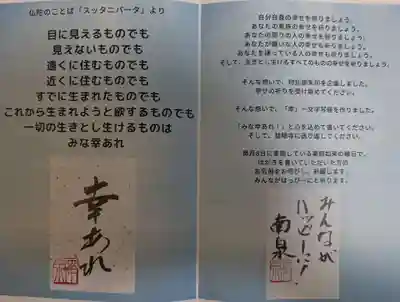 仏陀のことば「スッタニパータ」より
目に見えるものでも
見えないものでも
遠くに住むものでも
近くに住むものでも
すでに生まれたものでも
これから生まれようと欲するものでも
一切の生きとし生けるものは
みな幸あれ
幸あれ
自分自身の幸せを祈りましょう。
あなたの家族の幸せを祈りましょう。
あなたの周りの人の幸せも祈りましょう。
あなたが嫌いな人の幸せも祈りましょう。
あなたを嫌っている人の幸せも祈りましょう。
そして、生きとし生けるすべてのものの幸せを祈りましょう。
そんな想いで、
幸せの祈りを受け取めてください。
そんな想いで、「幸」一文字写経を作りました。
「みな幸あれ！」と心を込めて書いてください。
そして、
みんながはっぴーにと祈ります。
みんなが
ハッピーに！
南泉